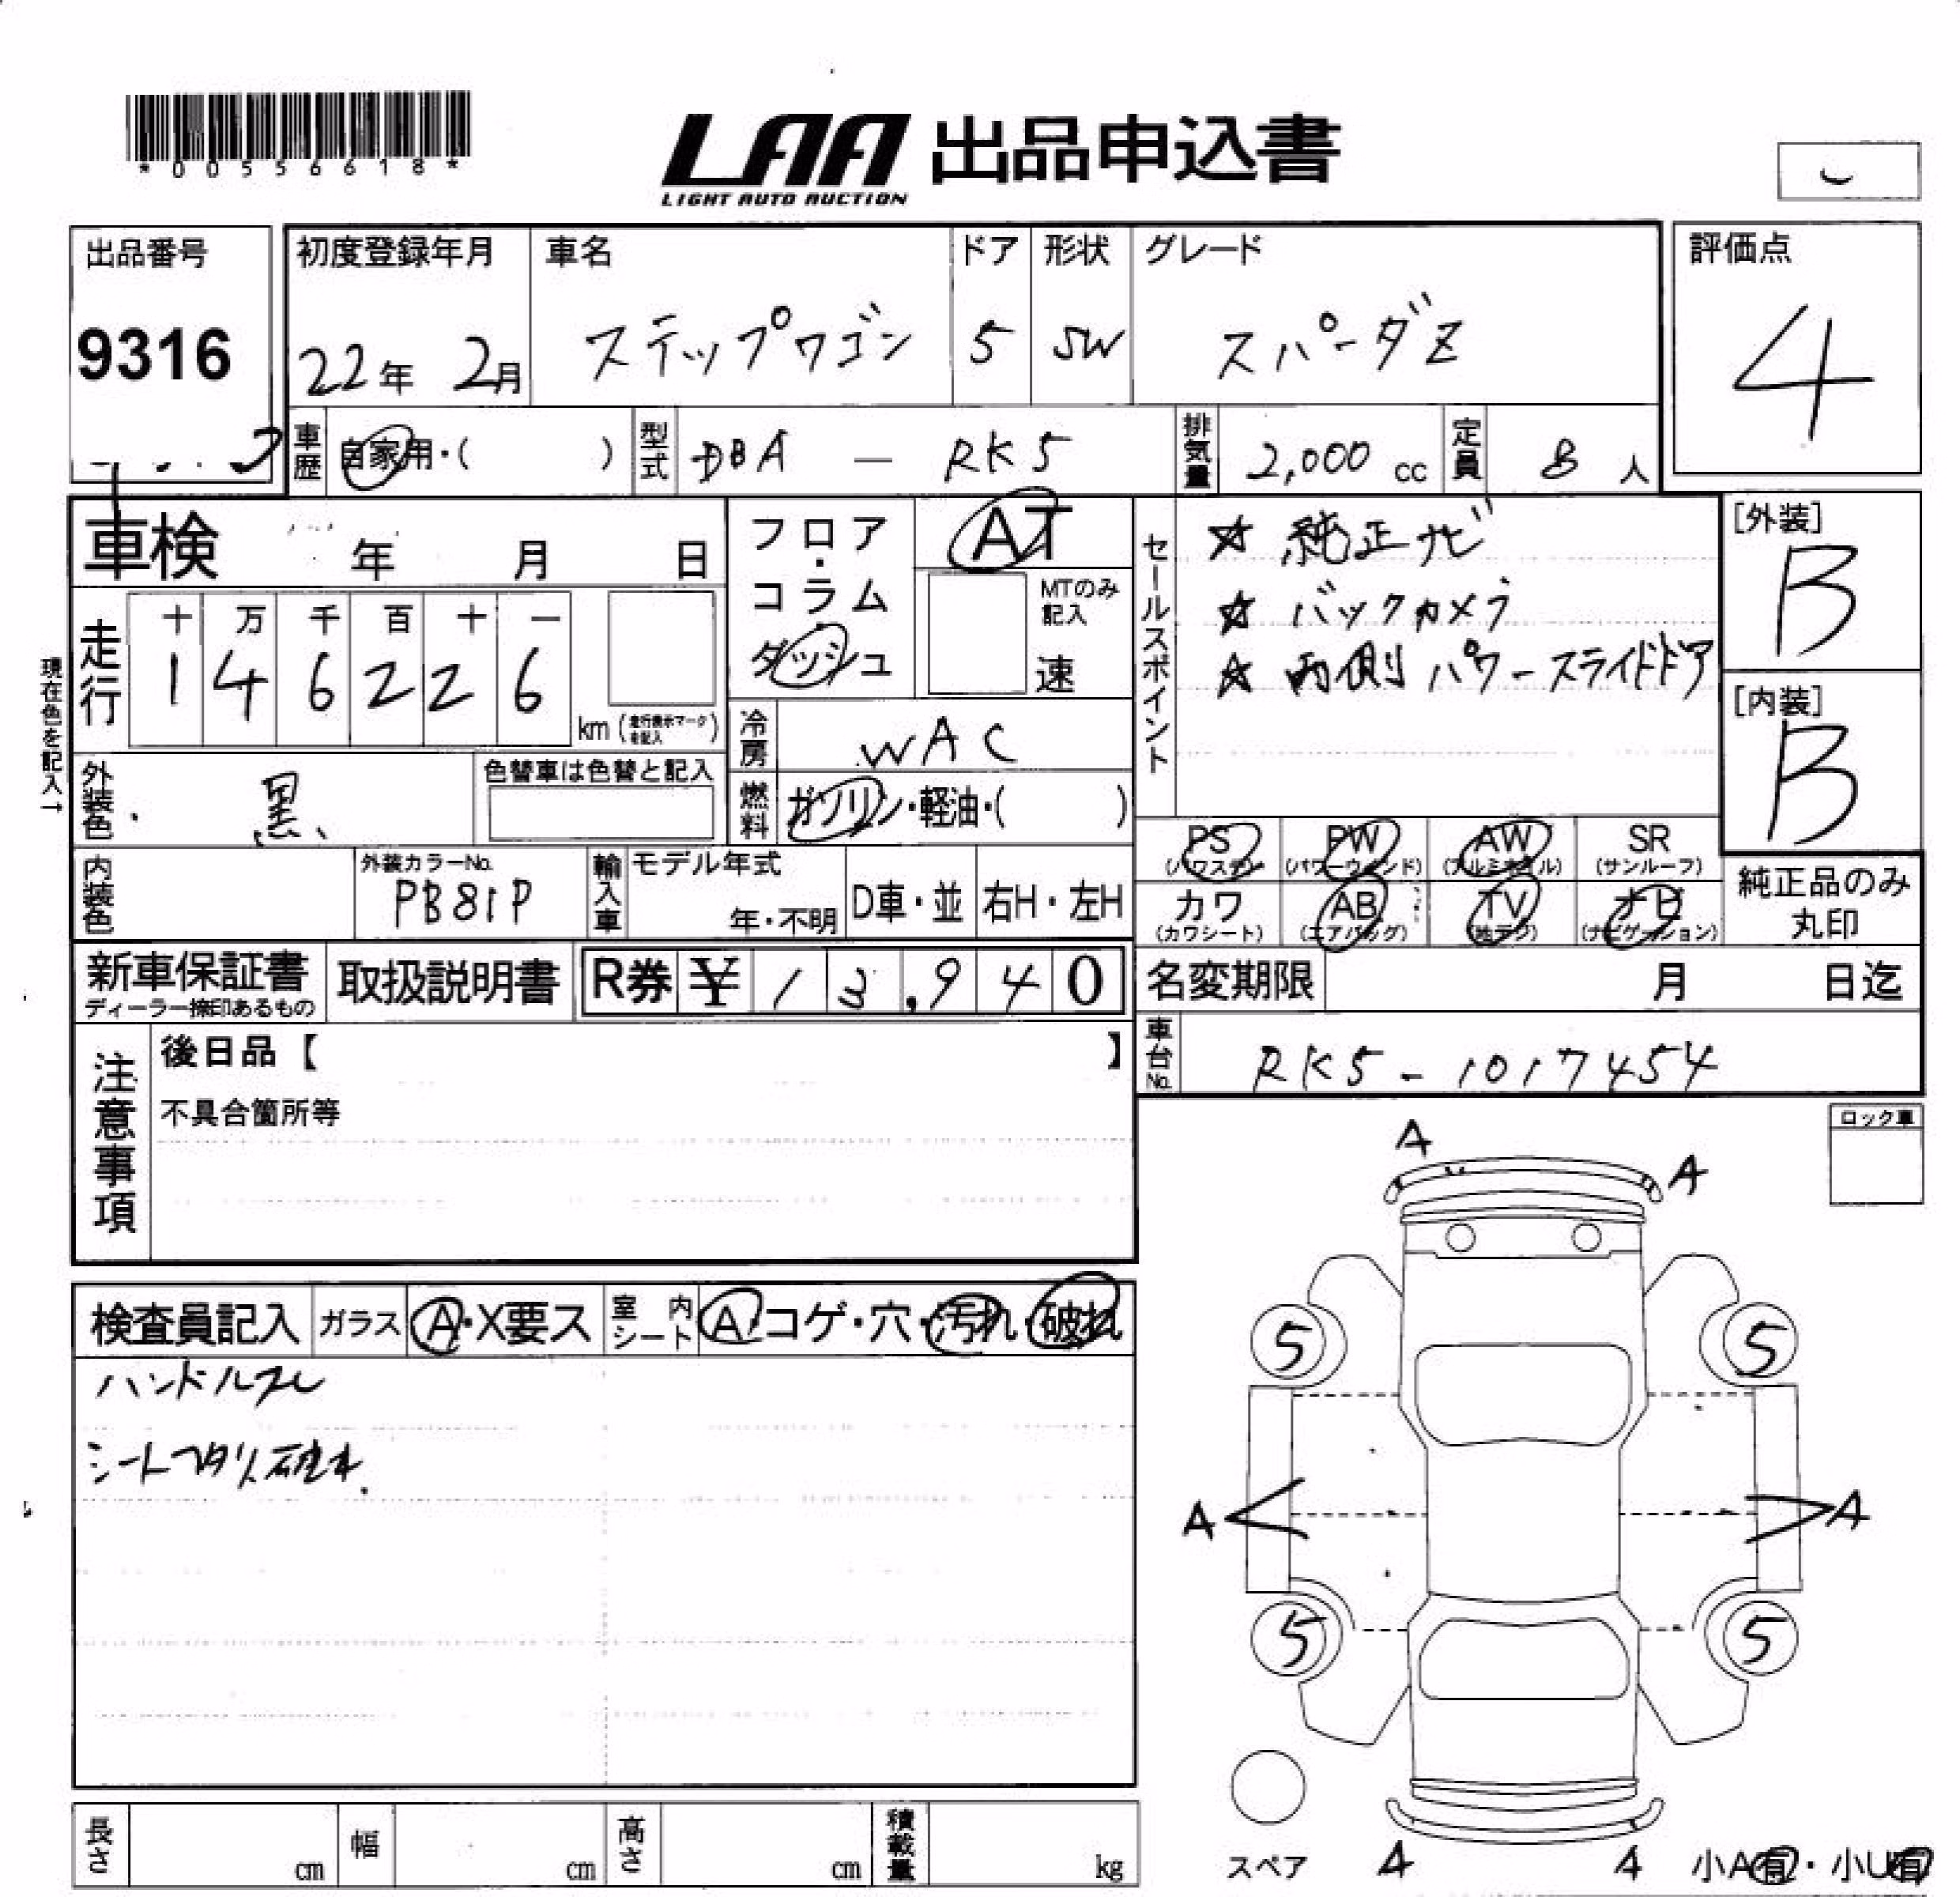 *00556618*
LAA 出品申込書
LIGHT AUTO AUCTION
出品番号
9316
初度登録年月
22年 2月
車名
ステップワゴン
ドア
5
形状
SW
グレード
スパーダZ
評価点
4
車歴 自家用・( )
型式 DBA — RK5
排気量 2,000 cc
定員 8 人
車検 年 月 日
フロア・コラム・ダッシュ
AT
MTのみ記入
速
セールスポイント
☆ 純正ナビ
☆ バックカメラ
☆ 両側パワースライドドア
[外装]
B
[内装]
B
現在色を記入→
走行
十 万 千 百 十 一
1 4 6 2 2 6
km (走行表示マークを記入)
冷房 WAC
燃料 ガソリン・軽油・( )
外装色 黒
色替車は色替と記入
内装色
外装カラーNo.
PB81P
輸入車
モデル年式
年・不明
D車・並
右H・左H
PS (パワステ)
PW (パワーウィンド)
AW (アルミホイル)
SR (サンルーフ)
カワ (カワシート)
AB (エアバッグ)
TV (地デジ)
ナビ (ナビゲーション)
純正品のみ
丸印
新車保証書
ディーラー捺印あるもの
取扱説明書
R券 ¥ 13,940
名変期限 月 日迄
車台No. RK5-1017454
注意事項
後日品【 】
不具合箇所等
ロック車
検査員記入
ガラス A・X要ス
室内シート A コゲ・穴・汚れ・破れ
ハンドルスレ
シートヘタリ
A A
5 5
A A
5 5
スペア
A A
小A有・小U有
長さ cm
幅 cm
高さ cm
積載量 kg